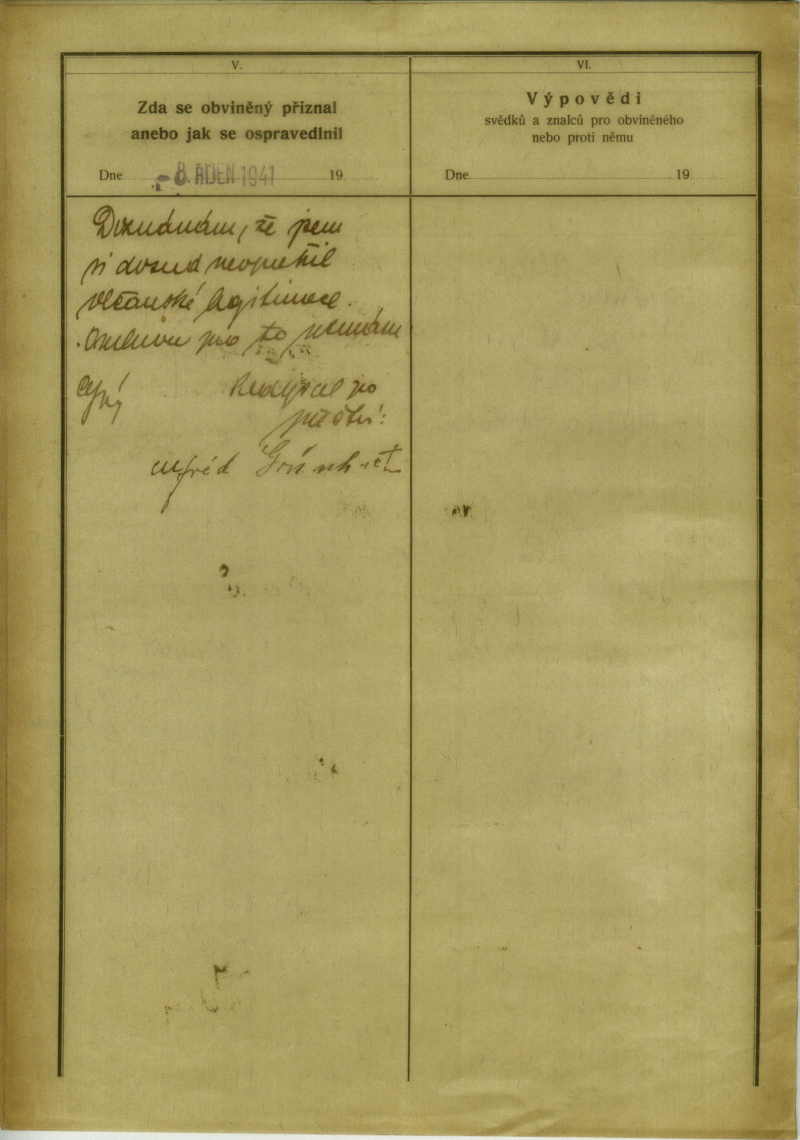 V.
Zda se obviněný přiznal
anebo jak se ospravedlnil
Dne - 8. ŘÍJEN 1941 19
Doznávám, že jsem
si dosud neopatřil
občanské legitimace.
Omluvu pro to nemám
po
přečtení:
Alfréd
VI.
Výpovědi
svědků a znalců pro obviněného
nebo proti němu
Dne 19